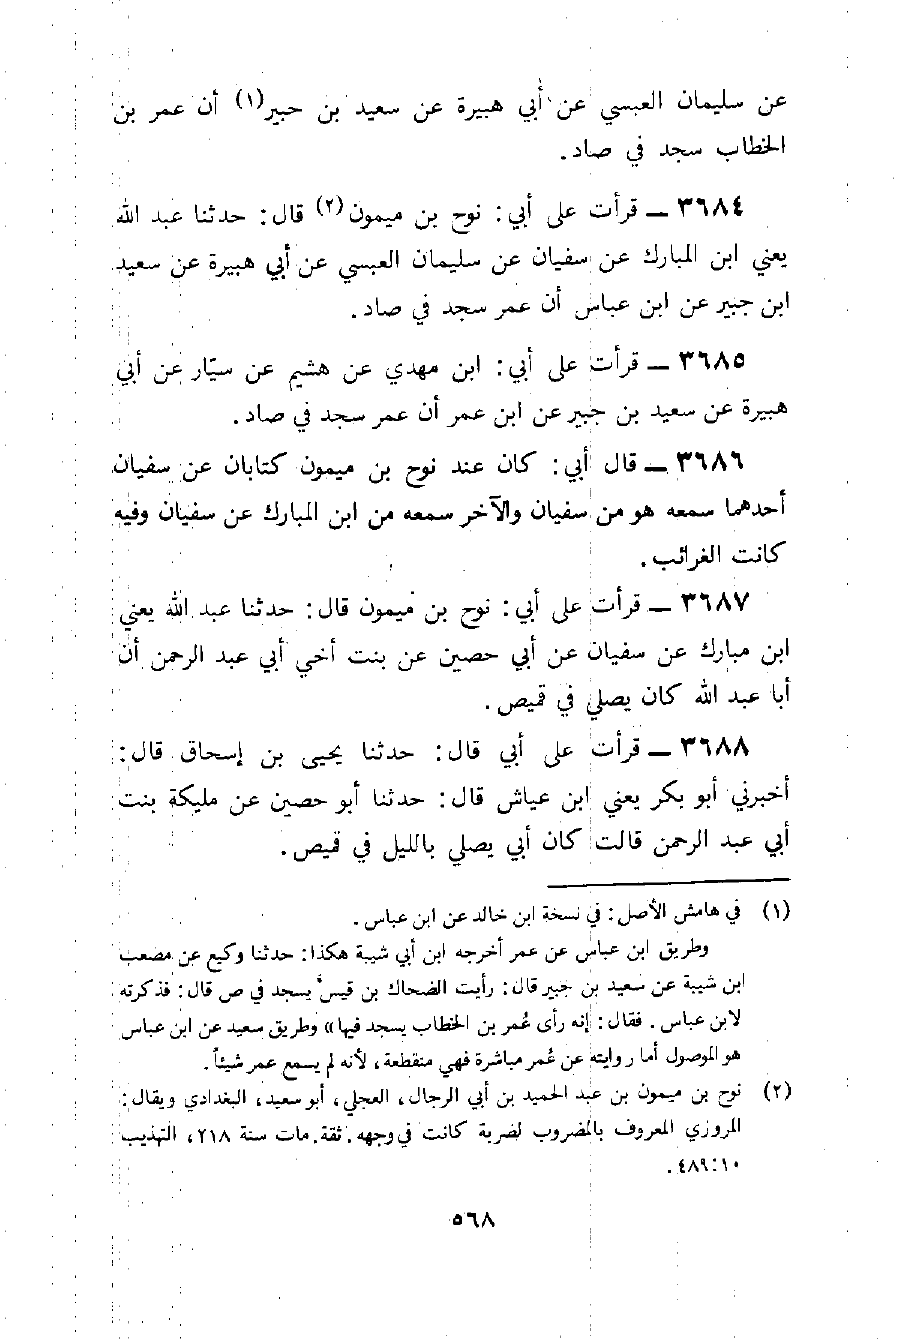 عن سليمان العبسي عن أبي هبيرة عن سعيد بن حبير(١) أن عمر بن
الخطاب سجد في صاد.
٣٦٨٤ ـ قرأت على أبي: نوح بن ميمون(٢) قال: حدثنا عبد الله
يعني ابن المبارك عن سفيان عن سليمان العبسي عن أبي هبيرة عن سعيد
ابن جبير عن ابن عباس أن عمر سجد في صاد.
٣٦٨٥ ـ قرأت على أبي: ابن مهدي عن هشيم عن سيّار عن أبي
هبيرة عن سعيد بن جبير عن ابن عمر أن عمر سجد في صاد.
٣٦٨٦ ـ قال أبي: كان عند نوح بن ميمون كتابان عن سفيان
أحدهما سمعه هو من سفيان والآخر سمعه من ابن المبارك عن سفيان وفيه
كانت الغرائب.
٣٦٨٧ ـ قرأت على أبي: نوح بن ميمون قال: حدثنا عبد الله يعني
ابن مبارك عن سفيان عن أبي حصين عن بنت أخي أبي عبد الرحمن أن
أبا عبد الله كان يصلي في قميص.
٣٦٨٨ ـ قرأت على أبي قال: حدثنا يحيى بن إسحاق قال:
أخبرني أبو بكر يعني ابن عياش قال: حدثنا أبو حصين عن مليكة بنت
أبي عبد الرحمن قالت كان أبي يصلي بالليل في قميص.
(١) في هامش الأصل: في نسخة ابن خالد عن ابن عباس.
وطريق ابن عباس عن عمر أخرجه ابن أبي شيبة هكذا: حدثنا وكيع عن مصعب
ابن شيبة عن سعيد بن جبير قال: رأيت الضحاك بن قيس يسجد في ص قال: فذكرته
لابن عباس. فقال: إنه رأى عُمر بن الخطاب يسجد فيها» وطريق سعيد عن ابن عباس
هو الموصول أما روايته عن عُمر مباشرة فهي منقطعة، لأنه لم يسمع عمر شيئاً.
(٢) نوح بن ميمون بن عبد الحميد بن أبي الرجال، العجلي، أبو سعيد، البغدادي ويقال:
المروزي المعروف بالمضروب لضربة كانت في وجهه. ثقة. مات سنة ٢١٨، التهذيب
٤٨٩:١٠.
٥٦٨